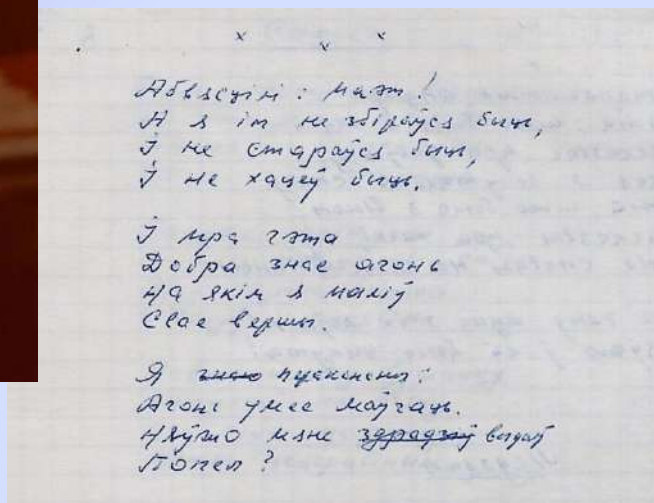 х х х
Абвясцілі: паэт!
А я ім не збіраўся быць,
І не стараўся быць,
І не хацеў быць.
І пра гэта
Добра знае агонь
На якім я паліў
Свае вершы.
Я знаю перакананы:
Агонь умее маўчаць.
Няўжо мяне здрадзіў выдаў
Попел?